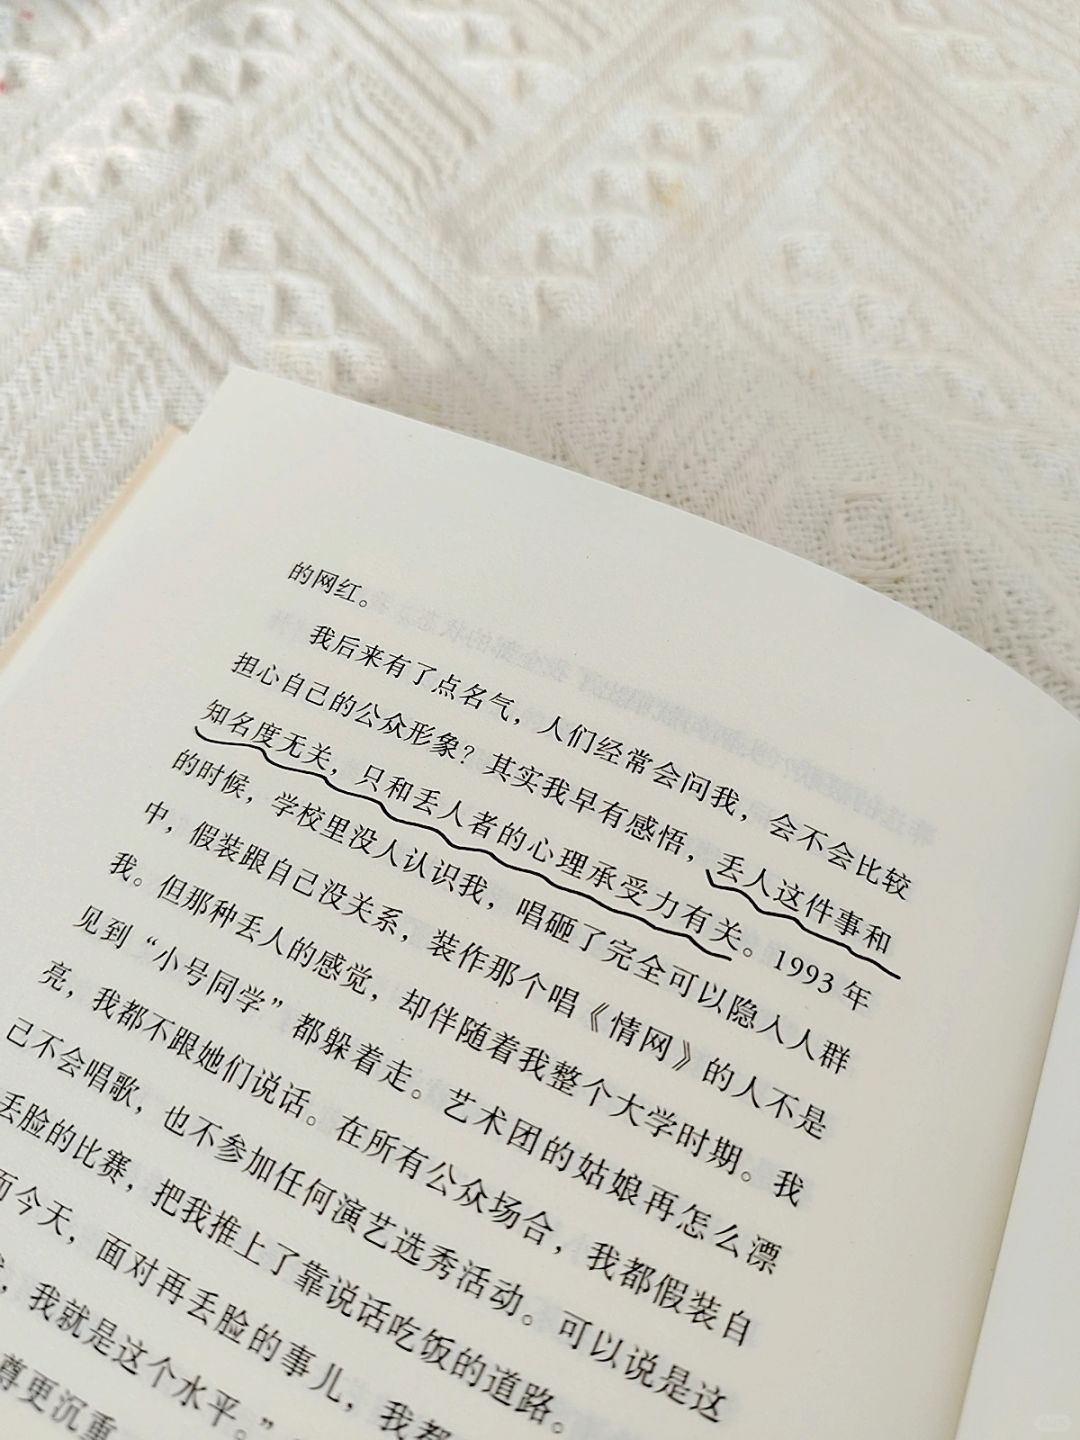 的网红。
我后来有了点名气，人们经常会问我，会不会比较
担心自己的公众形象？其实我早有感悟，丢人这件事和
知名度无关，只和丢人者的心理承受力有关。1993年
的时候，学校里没人认识我，唱砸了完全可以隐入人群
中，假装跟自己没关系，装作那个唱《情网》的人不是
我。但那种丢人的感觉，却伴随着我整个大学时期。我
见到“小号同学”都躲着走。艺术团的姑娘再怎么漂
亮，我都不跟她们说话。在所有公众场合，我都假装自
己不会唱歌，也不参加任何演艺选秀活动。可以说是这
丢脸的比赛，把我推上了靠说话吃饭的道路。
而今天，面对再丢脸的事儿，我都
，我就是这个水平。”
尊更沉重